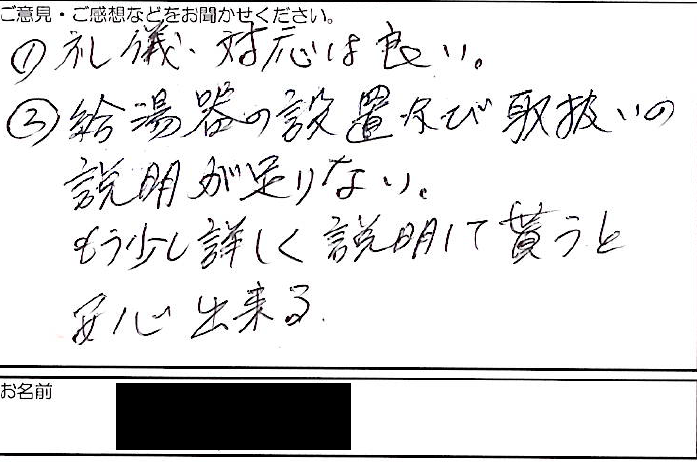 ご意見・ご感想などをお聞かせください。
① 礼儀、対応は良い。
② 給湯器の設置及び取扱いの
説明が足りない。
もう少し詳しく説明して貰うと
安心出来る.
お名前